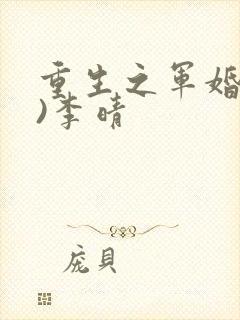 重生之军婚
)李晴
庞貝